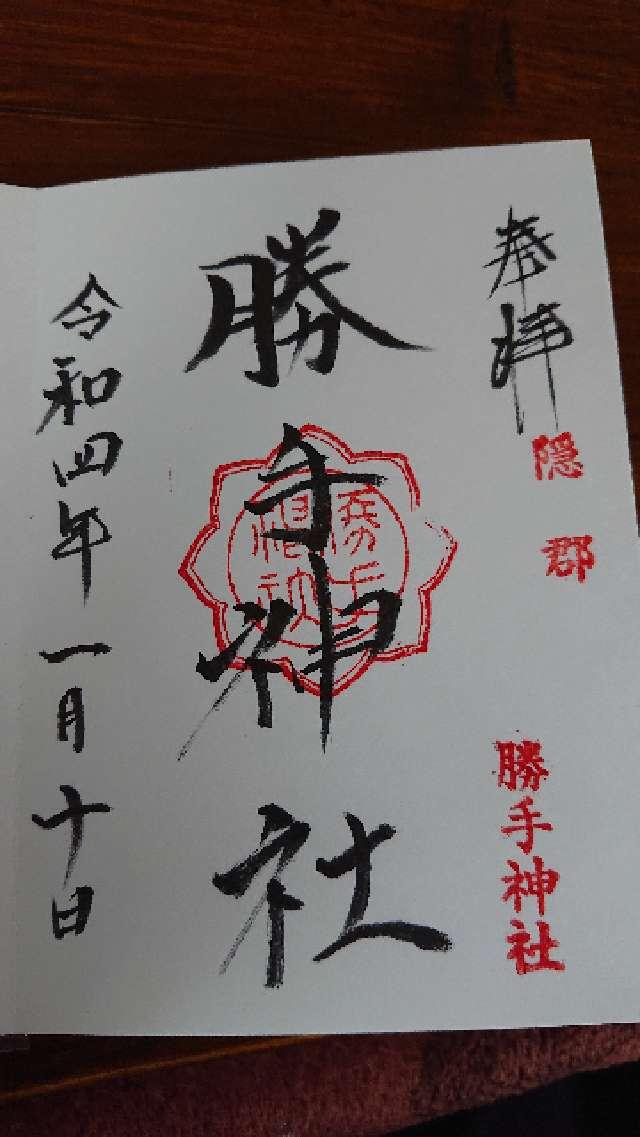 奉拝
隠郡
勝手神社
勝手神社
令和四年一月十日